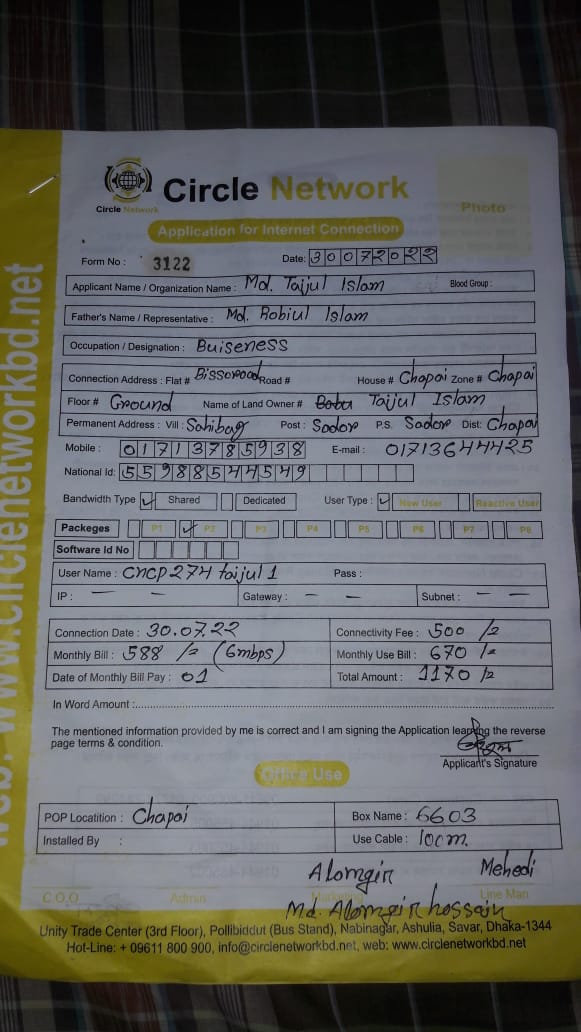 web: www.circlenetworkbd.net
Circle Network
Circle Network
Photo
Application for Internet Connection
Form No : 3122 Date: 30072022
Applicant Name / Organization Name : Md. Taijul Islam Blood Group :
Father's Name / Representative : Md. Robiul Islam
Occupation / Designation : Buiseness
Connection Address : Flat # Bissorood Road # House # Chapai Zone # Chapai
Floor # Ground Name of Land Owner # Babu Taijul Islam
Permanent Address : Vill : Sahibag Post : Sador P.S. Sador Dist: Chapai
Mobile : 01713785938 E-mail : 01713644425
National Id: 5598854 4549
Bandwidth Type Shared Dedicated User Type : New User Reactive User
Packeges P1 P2 P3 P4 P5 P6 P7 P8
Software Id No
User Name : cncp274 taijul1 Pass :
IP : — — Gateway : — — Subnet : — —
Connection Date : 30.07.22 Connectivity Fee : 500 /=
Monthly Bill : 588 /= (6mbps) Monthly Use Bill : 670 /=
Date of Monthly Bill Pay : 01 Total Amount : 1170 /=
In Word Amount :
The mentioned information provided by me is correct and I am signing the Application learning the reverse
page terms & condition.
Applicant's Signature
Office Use
POP Locatition : Chapai Box Name : 6603
Installed By : Use Cable : 100m.
Alomgir Mehedi
C.O.O Admin Marketing Line Man
Md. Alomgir hossain
Unity Trade Center (3rd Floor), Pollibiddut (Bus Stand), Nabinagar, Ashulia, Savar, Dhaka-1344
Hot-Line: + 09611 800 900, info@circlenetworkbd.net, web: www.circlenetworkbd.net